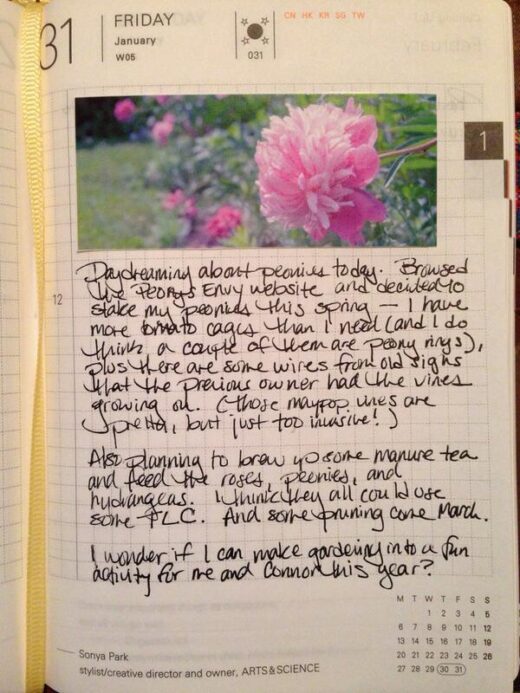 31
FRIDAY
January
W05
031
CN HK KR SG TW
1
12
Daydreaming about peonies today. Browsed
the Peony's Envy website and decided to
stake my peonies this spring — I have
more tomato cages than I need (and I do
think a couple of them are peony rings),
plus there are some wires from old signs
that the previous owner had the vines
growing on. (Those maypop vines are
pretty, but just too invasive!)
Also planning to brew up some manure tea
and feed the roses, peonies, and
hydrangeas. I think they all could use
some TLC. And some pruning come March.
I wonder if I can make gardening into a fun
activity for me and Connor this year?
M T W T F S S
1 2 3 4 5
6 7 8 9 10 11 12
13 14 15 16 17 18 19
20 21 22 23 24 25 26
27 28 29 30 31
Sonya Park
stylist/creative director and owner, ARTS&SCIENCE